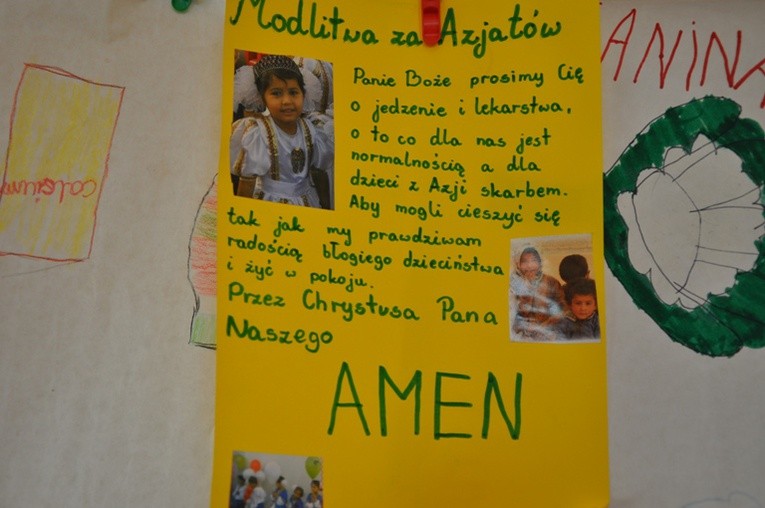 Modlitwa za Azjatów
Panie Boże prosimy Cię
o jedzenie i lekarstwa,
o to co dla nas jest
normalnością a dla
dzieci z Azji skarbem.
Aby mogli cieszyć się
tak jak my prawdziwam
radością błogiego dzieciństwa
i żyć w pokoju.
Przez Chrystusa Pana
Naszego
AMEN
ANINA